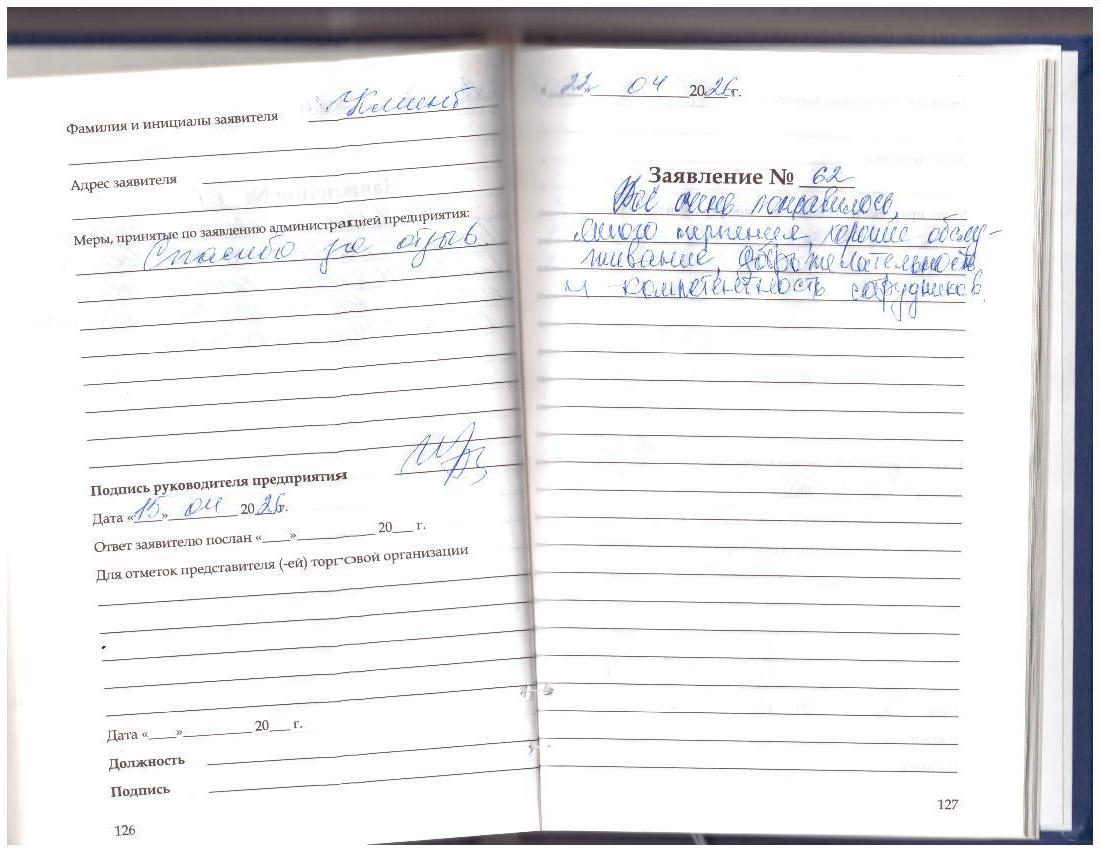 Фамилия и инициалы заявителя Клиент
Адрес заявителя
Меры, принятые по заявлению администрацией предприятия:
Спасибо за отзыв.
Подпись руководителя предприятия
Дата «15» 04 2026г.
Ответ заявителю послан «___»__________ 20___ г.
Для отметок представителя (-ей) торговой организации
Дата «___»_________ 20___ г.
Должность
Подпись
126
22 04 2026г.
Заявление № 62
Всё очень понравилось,
много терпения, хорошее обслу-
живание, доброжелательность
и компетентность сотрудников.
127